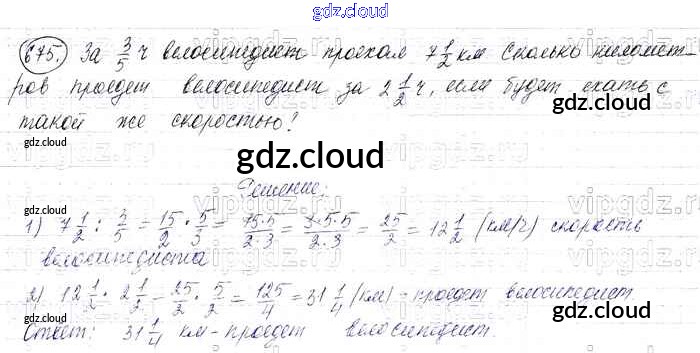 gdz.cloud
675. За 3/5 ч велосипедист проехал 7 1/2 км Сколько километ-
ров проедет велосипедист за 2 1/2 ч, если будет ехать с
такой же скоростью?
gdz.cloud
gdz.cloud
gdz.cloud
Решение:
1) 7 1/2 : 3/5 = 15/2 · 5/3 = 15·5/2·3 = 3·5·5/2·3 = 25/2 = 12 1/2 (км/ч) скорость
велосипедиста
2) 12 1/2 · 2 1/2 = 25/2 · 5/2 = 125/4 = 31 1/4 (км) - проедет велосипедист.
Ответ: 31 1/4 км - проедет велосипедист.
gdz.cloud
gdz.cloud